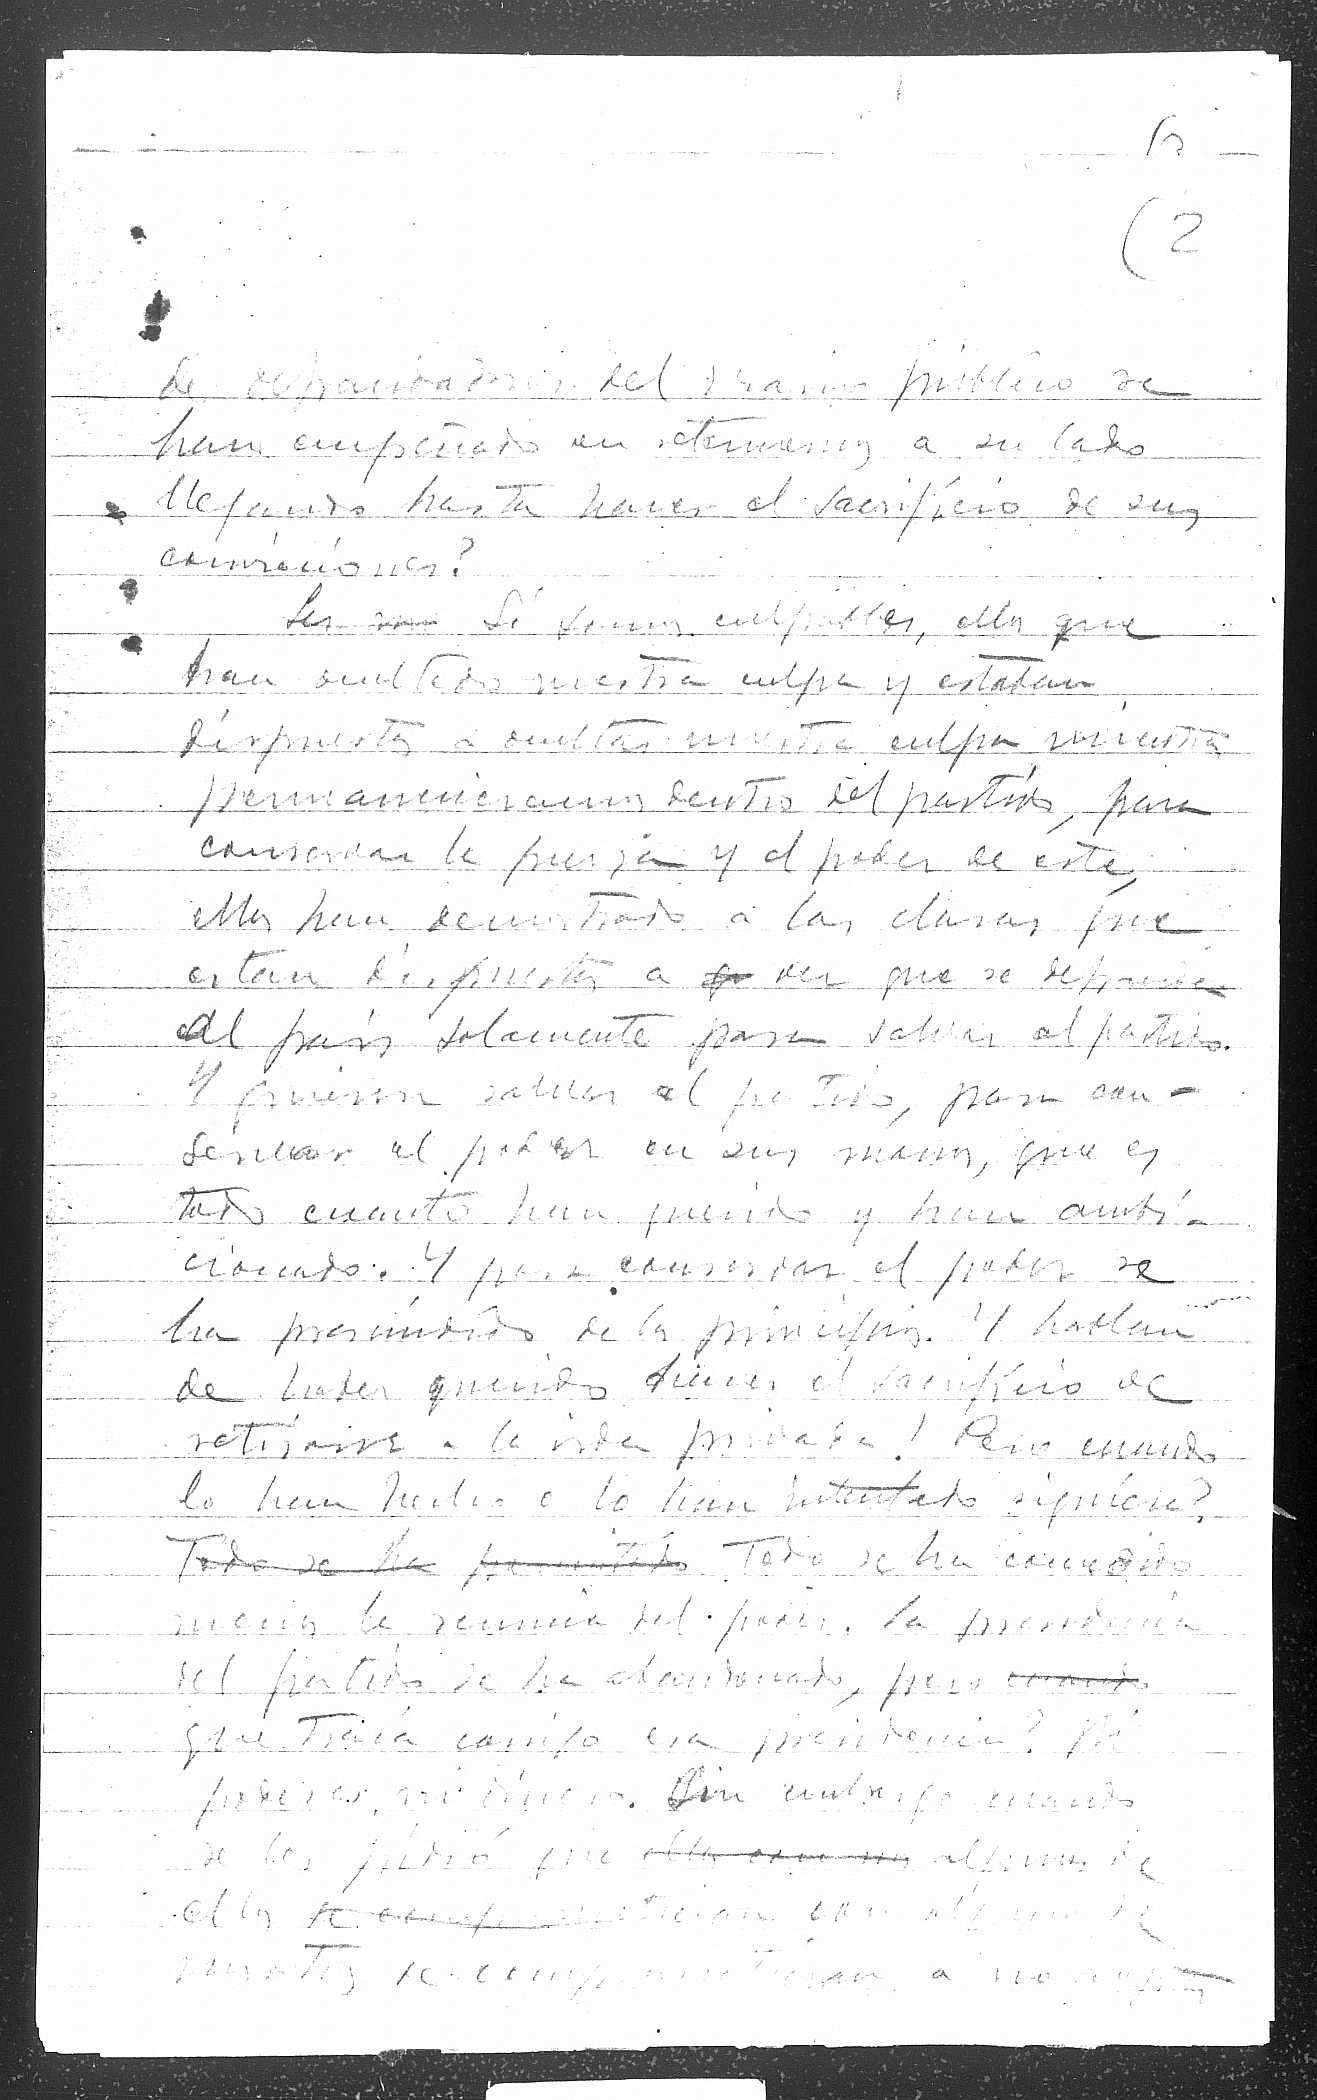 (2
de defraudadores del erario público se
han empeñado en retenernos a su lado
llegando hasta hacer el sacrificio de sus
convicciones?
Si somos culpables, ellos que
han ocultado nuestra culpa y estaban
dispuestos a ocultar nuestra culpa mientras
permanecieramos dentro del partido, para
conservar la fuerza y el poder de este,
ellos han demostrado a las claras que
estan dispuestos a ver que se defraude
al pais solamente para salvar al partido.
Y quieren salvar al partido, para con-
servar el poder en sus manos, que es
todo cuanto han querido y han ambi-
cionado. Y para conservar el poder se
ha prescindido de los principios. Y hablan
de haber querido hacer el sacrificio de
retirarse a la vida privada! Pero cuando
lo han hecho o lo han intentado siquiera?
Todo se ha permitido Todo se ha concedido
menos la renuncia del poder. La presidencia
del partido se ha abandonado, pero cuando
que traía consigo esa presidencia? Ni
poderes, ni dinero. Sin embargo cuando
se les pidió que algunos de
ellos se comprometieran con algunos de
nuestros se comprometieran a no